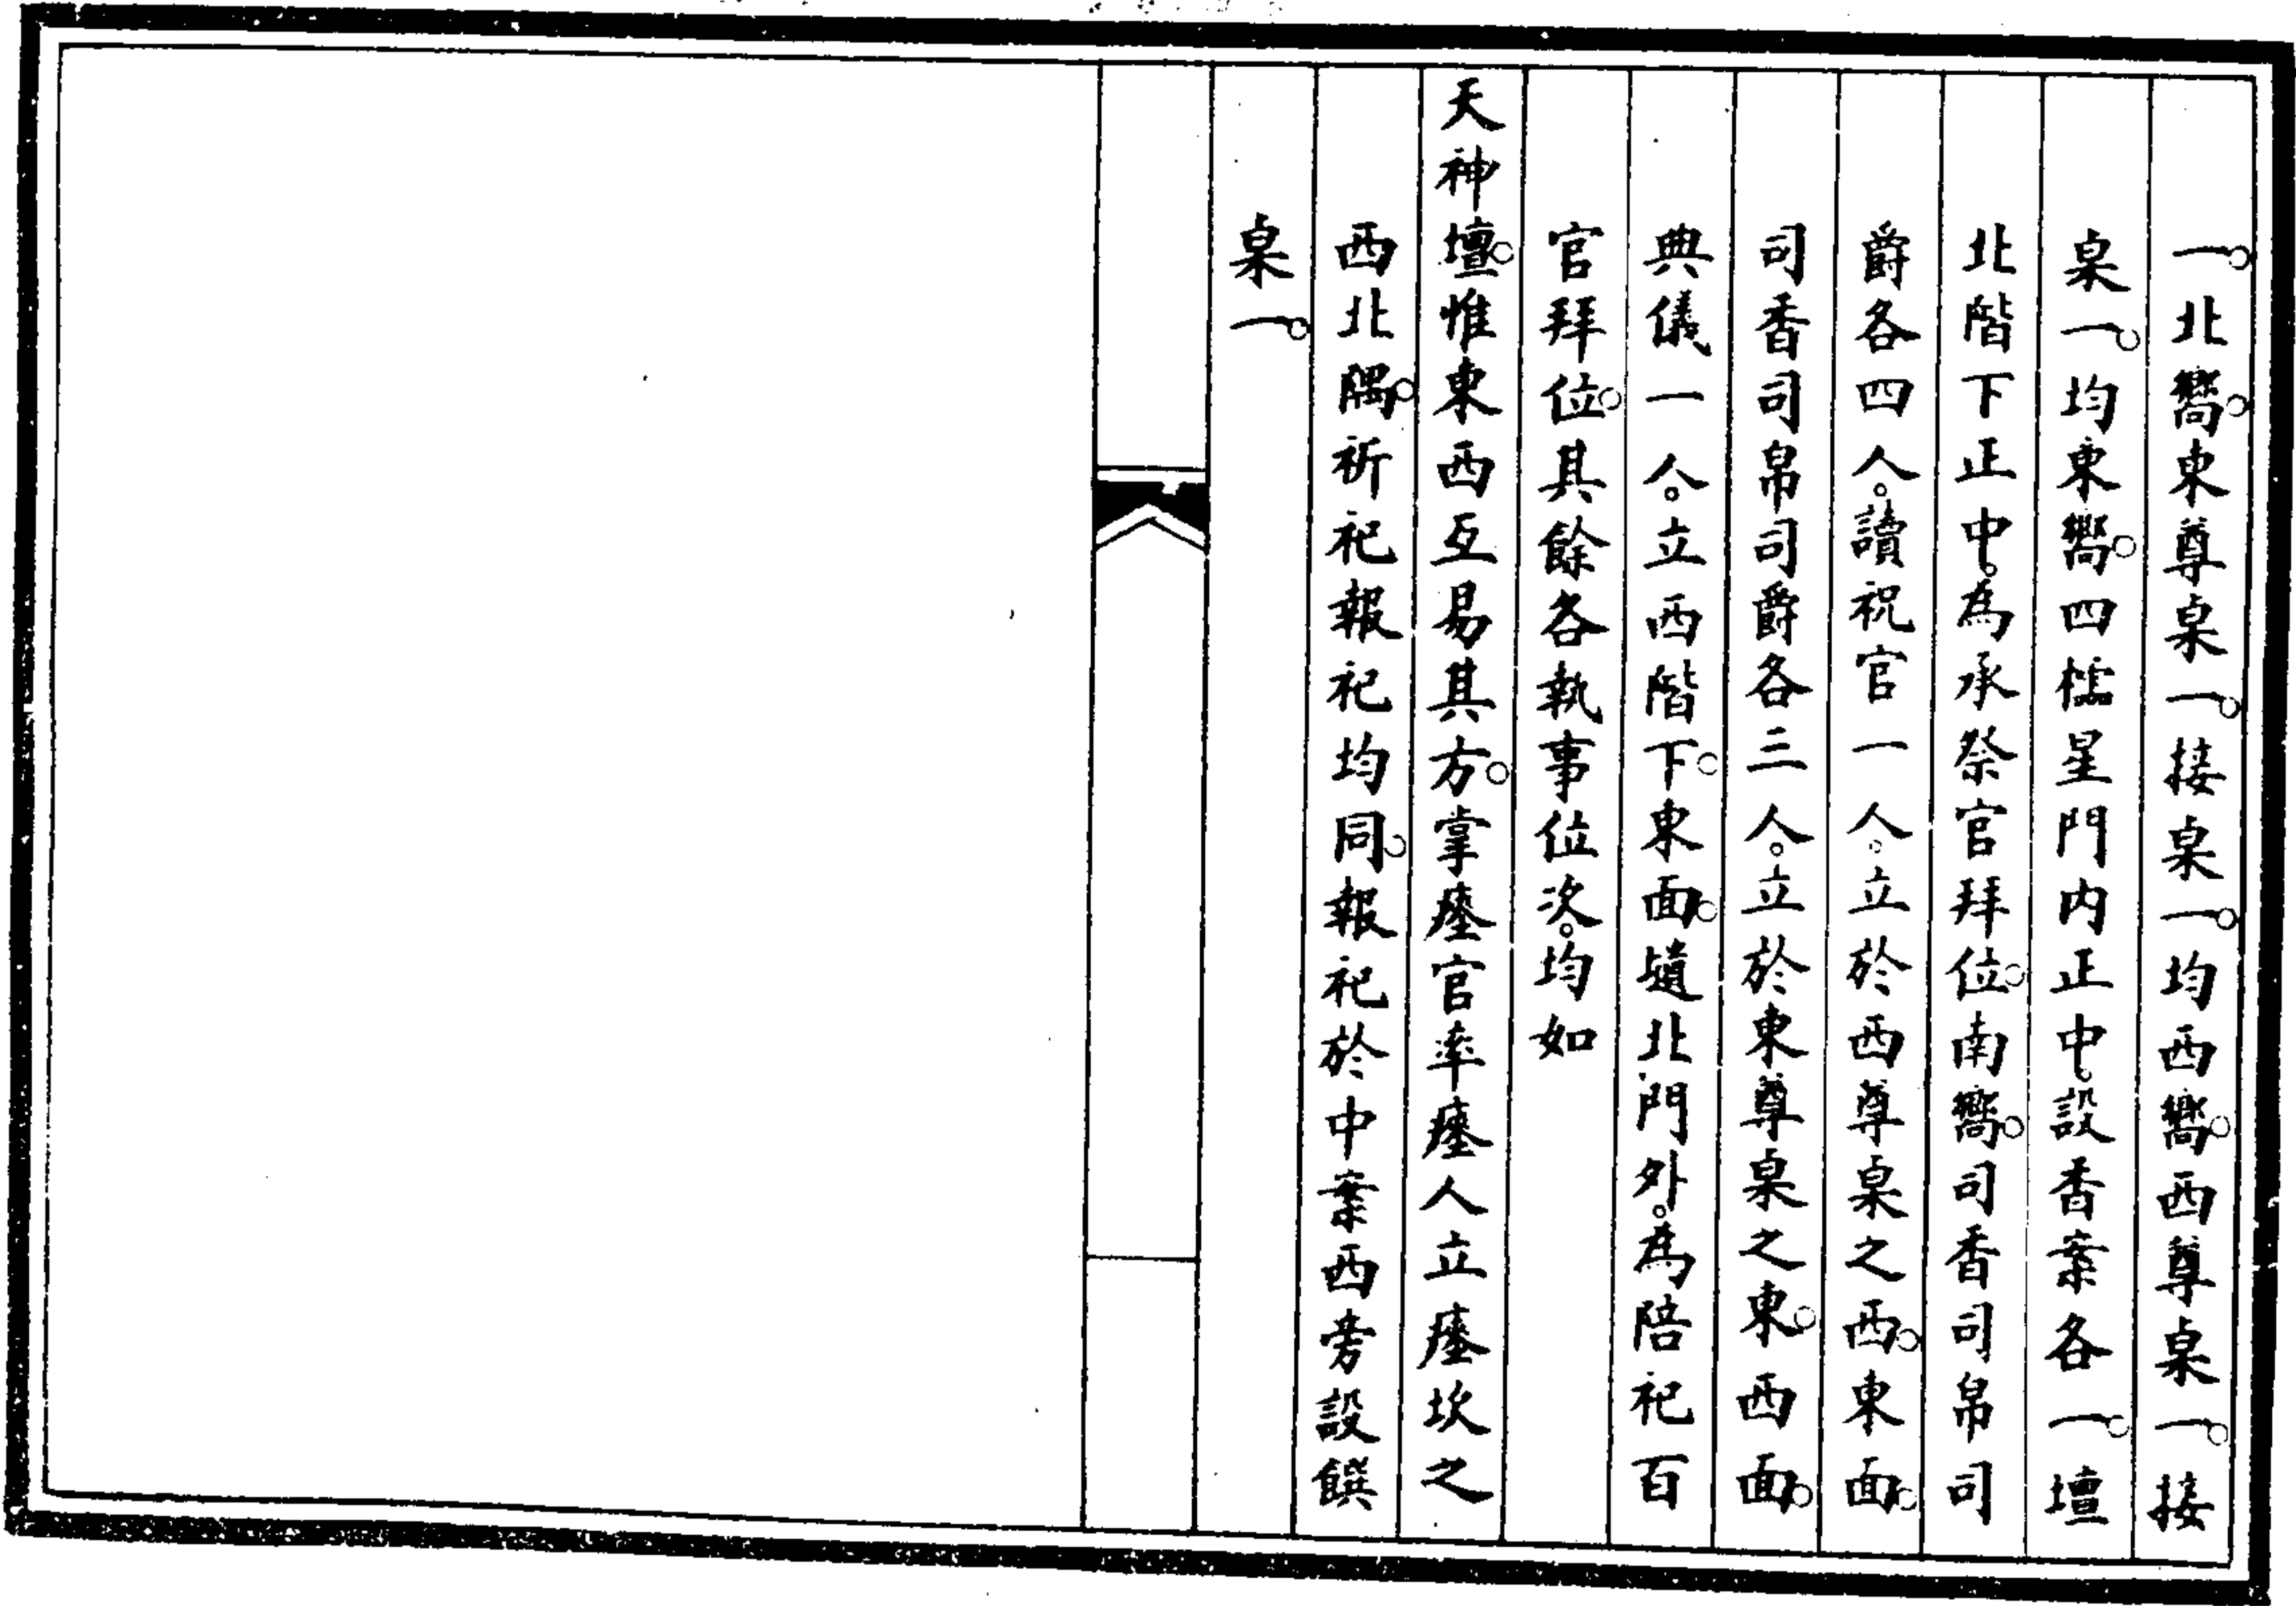 一。北嚮。東尊桌一。接桌一。均西嚮。西尊桌一。接
桌一。均東嚮。四櫺星門内正中。設香案各一。壇
北階下正中。為承祭官拜位。南嚮。司香司帛司
爵各四人。讀祝官一人。立於西尊桌之西。東面。
司香司帛司爵各三人。立於東尊桌之東。西面。
典儀一人。立西階下。東面。壝北門外。為陪祀百
官拜位。其餘各執事位次。均如
天神壇。惟東西互易其方。掌瘞官率瘞人立瘞坎之
西北隅。祈祀報祀均同。報祀於中案西旁設饌
桌一。